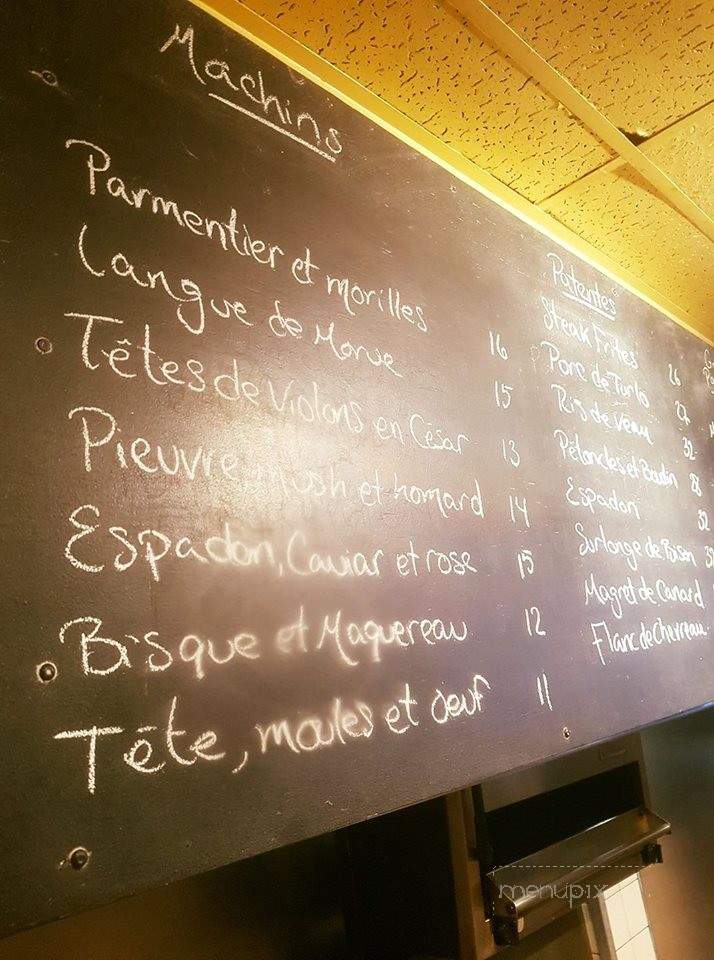 Machins
Parmentier et morilles 16
Langue de Morue 15
Têtes de Violons en César 13
Pieuvre, et homard 14
Espadon, Caviar et rose 15
Bisque et Maquereau 12
Tête, moules et oeuf 11
Patentes
Steak Frites 26
Porc de Turlo 27
Ris de Veau 32
Pétoncles et Boudin 28
Espadon 32
Surlonge de Bison
Magret de Canard
Flanc de Chevreau
menupix